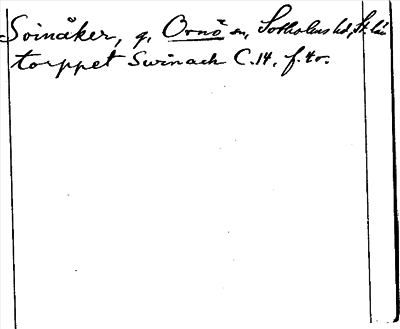 Svinåker, g, Ornö sn, Sotholms hd, St. län
torppet Swinach C.14. f. 4v.